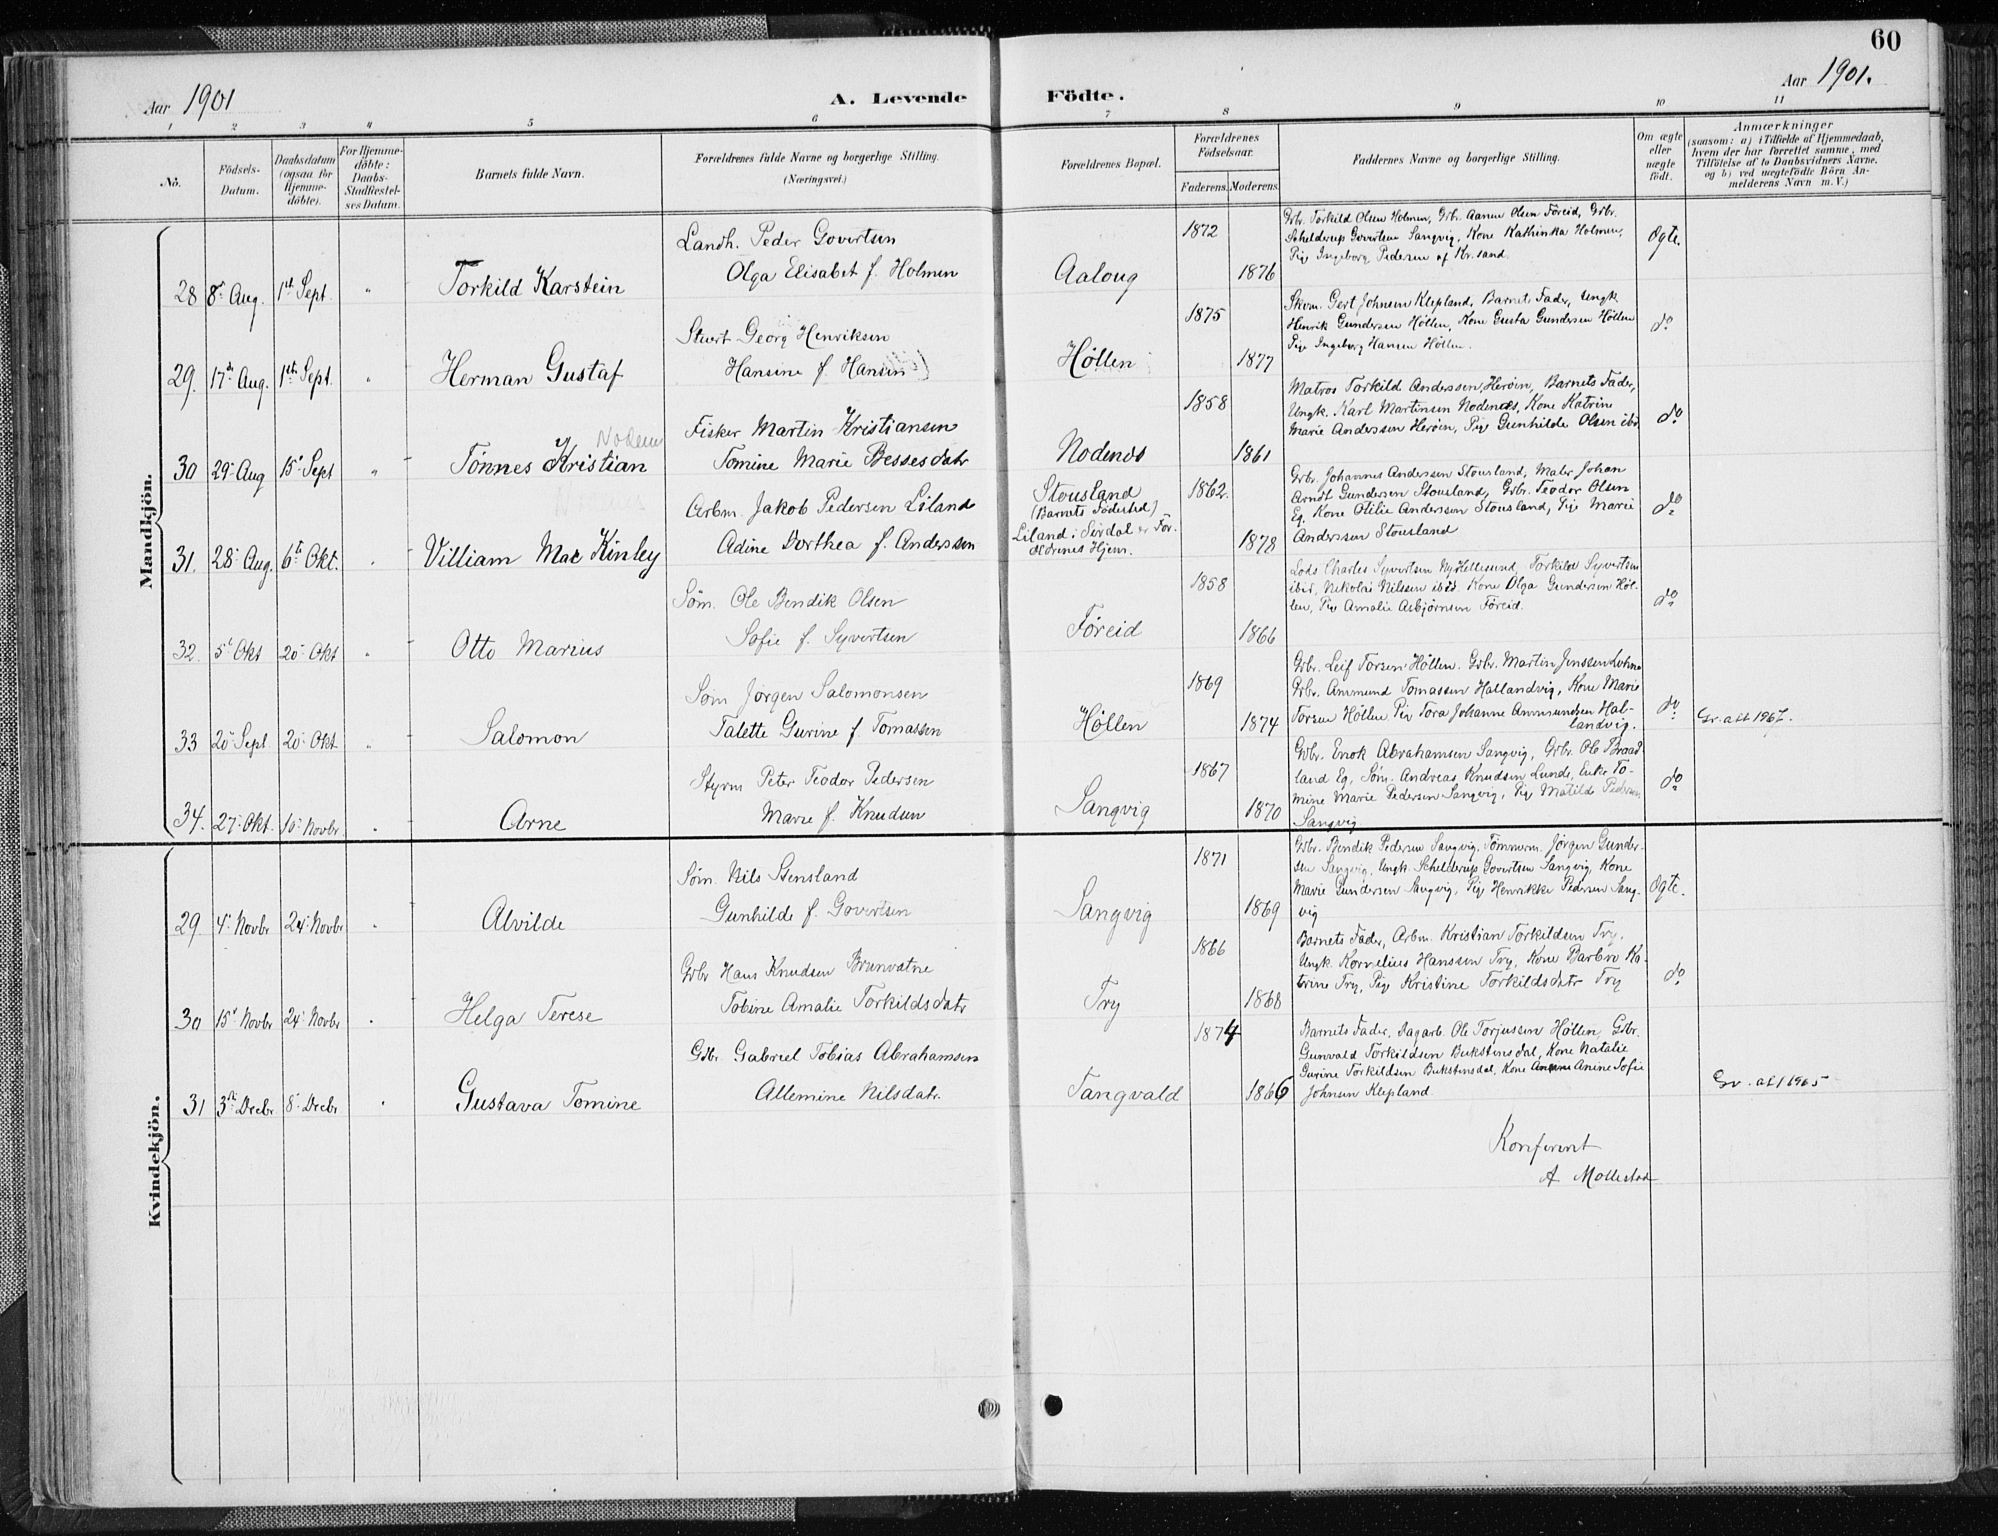 60
Aar 1901
A. Levende
Födte.
Aar 1901.
1 2 3 4 5 6 7 8 9 10 11
No.
Födsels-
Datum.
Daabsdatum
(ogsaa for
Hjemme-
döbte).
For Hjemme-
döbte:
Daabs-
Stadfæstel-
ses Datum.
Barnets fulde Navn.
Forældrenes fulde Navne og borgerlige Stilling.
(Næringsvei.)
Forældrenes Bopæl.
Forældrenes
Födselsaar.
Faderens. Moderens.
Faddernes Navne og borgerlige Stilling.
Om ægte
eller
uægte
födt.
Anmærkninger
(saasom: a) i Tilfælde af Hjemmedaab,
hvem der har forrettet samme, med
Tilföielse af to Daabsvidners Navne,
og b) ved uægtefödte Börn An-
melderens Navn m. V.)
Mandkjön.
28 8' Aug. 1ste Sept. " Torkild Karstein
Landh. Peder Govertsen
Olga Elisabet f. Holmen
Aaloug
1872
1876
Grbr. Torkild Olsen Holmen, Grbr. Aanen Olsen Föreid, Grbr.
Schelderup Govertsen Sangvig, Kone Kathinka Holmen,
Pige Ingeborg Pedersen af Kr.sand.
Ægte.
29. 17de Aug. 1ste Sept. " Herman Gustaf
Stuert Georg Henriksen
Hansine f Hansen
Höllen
1875
1877
Skom. Gert Johnsen Klepland, Barnets Fader, Ungk.
Henrik Gundersen Höllen, Kone Gusta Gundersen Höllen
Pige Ingeborg Hansen Höllen.
do
30 29' Aug 15' Sept " Tönnes Kristian
Nodenes
Fisker Martin Kristiansen
Tomine Marie Bessesdatr
Nodenes
1858
1861
Matros Torkild Anderssen, Heröen, Barnets Fader,
Ungk. Karl Martinsen Nodenes, Kone Katrine
Marie Anderssen Heröen, Pige Gunhilde Olsen ibd
do
31. 28' Aug. 6te Okt. " Villiam Mac Kinley
Arbm. Jakob Pedersen Liland
Adine Dorthea f. Anderssen
Stousland
(Barnets Födested)
Liland i Sirdal er For-
ældrenes Hjem.
1862.
1878
Grbr. Johannes Anderssen Stousland, Maler Johan
Arndt Gundersen Stousland, Grbr. Teodor Olsen
Eg. Kone Otilie Anderssen Stousland, Pige Marie
Anderssen Stousland
do
32. 5' Okt 20' Okt " Otto Marius
Söm. Ole Bendik Olsen
Sofie f. Syvertsen
Föreid
1858
1866
Lods Charles Syvertsen Ny Hellesund, Torkild Syvertsen
ibid, Nikolai Nilssen ibid. Kone Olga Gundersen Höl-
len, Pige Amalie Asbjörnsen Föreid.
do
33 20' Sept 20' Okt " Salomon
Söm Jörgen Salomonsen
Talette Gurine f Tomassen
Höllen
1869
1874
Grbr. Leif Torsen Höllen. Grbr. Martin Jenssen Lohne
Grbr. Ammund Tomassen Hallandvig, Kone Marie
Torsen Höllen Pige Tora Johanne Ammundsen Hal-
landvig.
do
Gv. att 1967.
34. 27' Okt. 10' Novbr " Arne
Styrm Peter Teodor Pedersen
Marie f. Knudsen
Sangvig
1867
1870
Grbr. Enok Abrahamsen Sangvig, Grbr. Ole Braad
land Eg, Söm. Andreas Knudsen Lunde, Enke To-
mine Marie Pedersen Sangvig, Pige Matilde Pedersen
Sangvig.
do
Kvindekjön.
29 4' Novbr 24' Novbr " Alvilde
Söm. Nils Stensland
Gunhilde f. Govertsen
Sangvig
1871
1869
Grbr. Bendik Pedersen Sangvig, Tömmerm. Jörgen Gunder-
sen Sangvig, Ungk. Schelderup Govertsen Sangvig, Kone
Marie Gundersen Sangvig, Pige Henrikke Pedersen Sang-
vig
Ægte.
30 15' Novbr 24' Novbr " Helga Terese
Grbr Hans Knudsen Brunvatne
Tobine Amalie Torkildsdatr
Try
1866
1868
Barnets Fader, Arbm. Kristian Torkildsen Try,
Ungk. Kornelius Hanssen Try, Kone Barbro Ka-
trine Try, Pige Kristine Torkildsdatr Try
do
31 3die Decbr 8' Decbr " Gustava Tomine
Gdbr. Gabriel Tobias Abrahamsen
Allemine Nilsdatr.
Tangvald
1874
1866
Barnets Fader, Dagarb. Ole Torjussen Höllen, Gdbr.
Gunvald Torkildsen Bukstensdal, Kone Natalie
Gurine Torkildsen Bukstensdal, Kone Anine Sofie
Johnsen Klepland.
Gv. att 1965
Konferert
A Mollestad